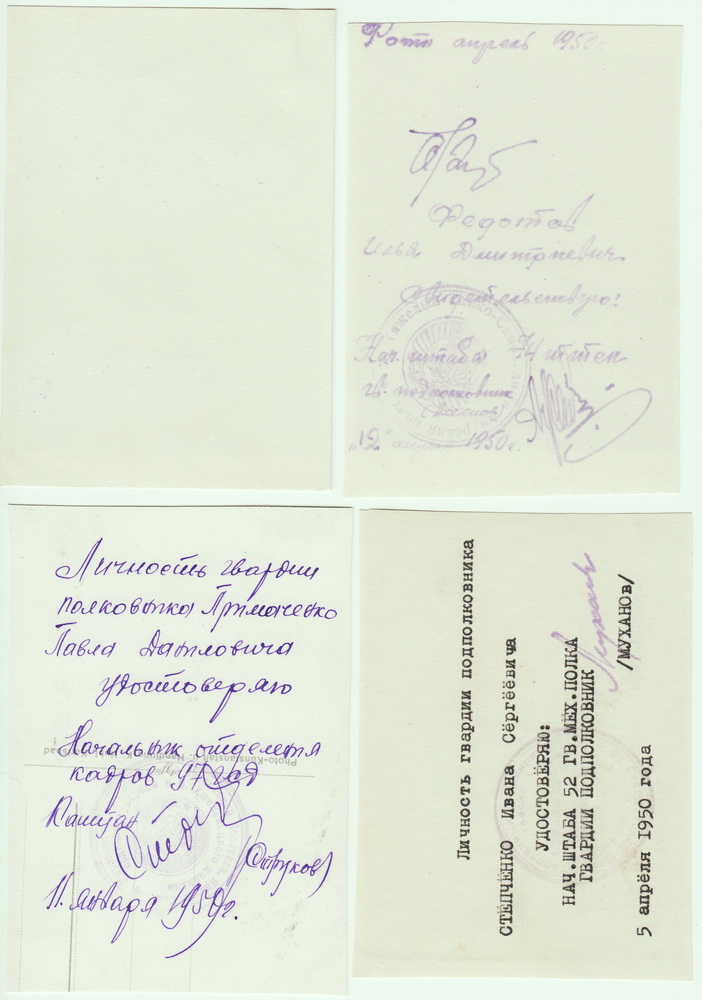 Фото апрель 1950г.
Федотов
Илья Дмитриевич
Свидетельствую:
Нач. штаба 74 тттсп
гв. подполковник
"12" апреля 1950г.
Личность гвардии
полковника Примаченко
Павла Даниловича
удостоверяю
Начальник отделения
кадров 97
Капитан
(Струков)
11. января 1950г.
Личность гвардии подполковника
СТЕПЧЕНКО Ивана Сёргёёвича
УДОСТОВЁРЯЮ:
НАЧ.ШТАБА 52 ГВ.МЕХ.ПОЛКА
ГВАРДИИ ПОДПОЛКОВНИК
/МУХАНОВ/
5 апрёля 1950 года